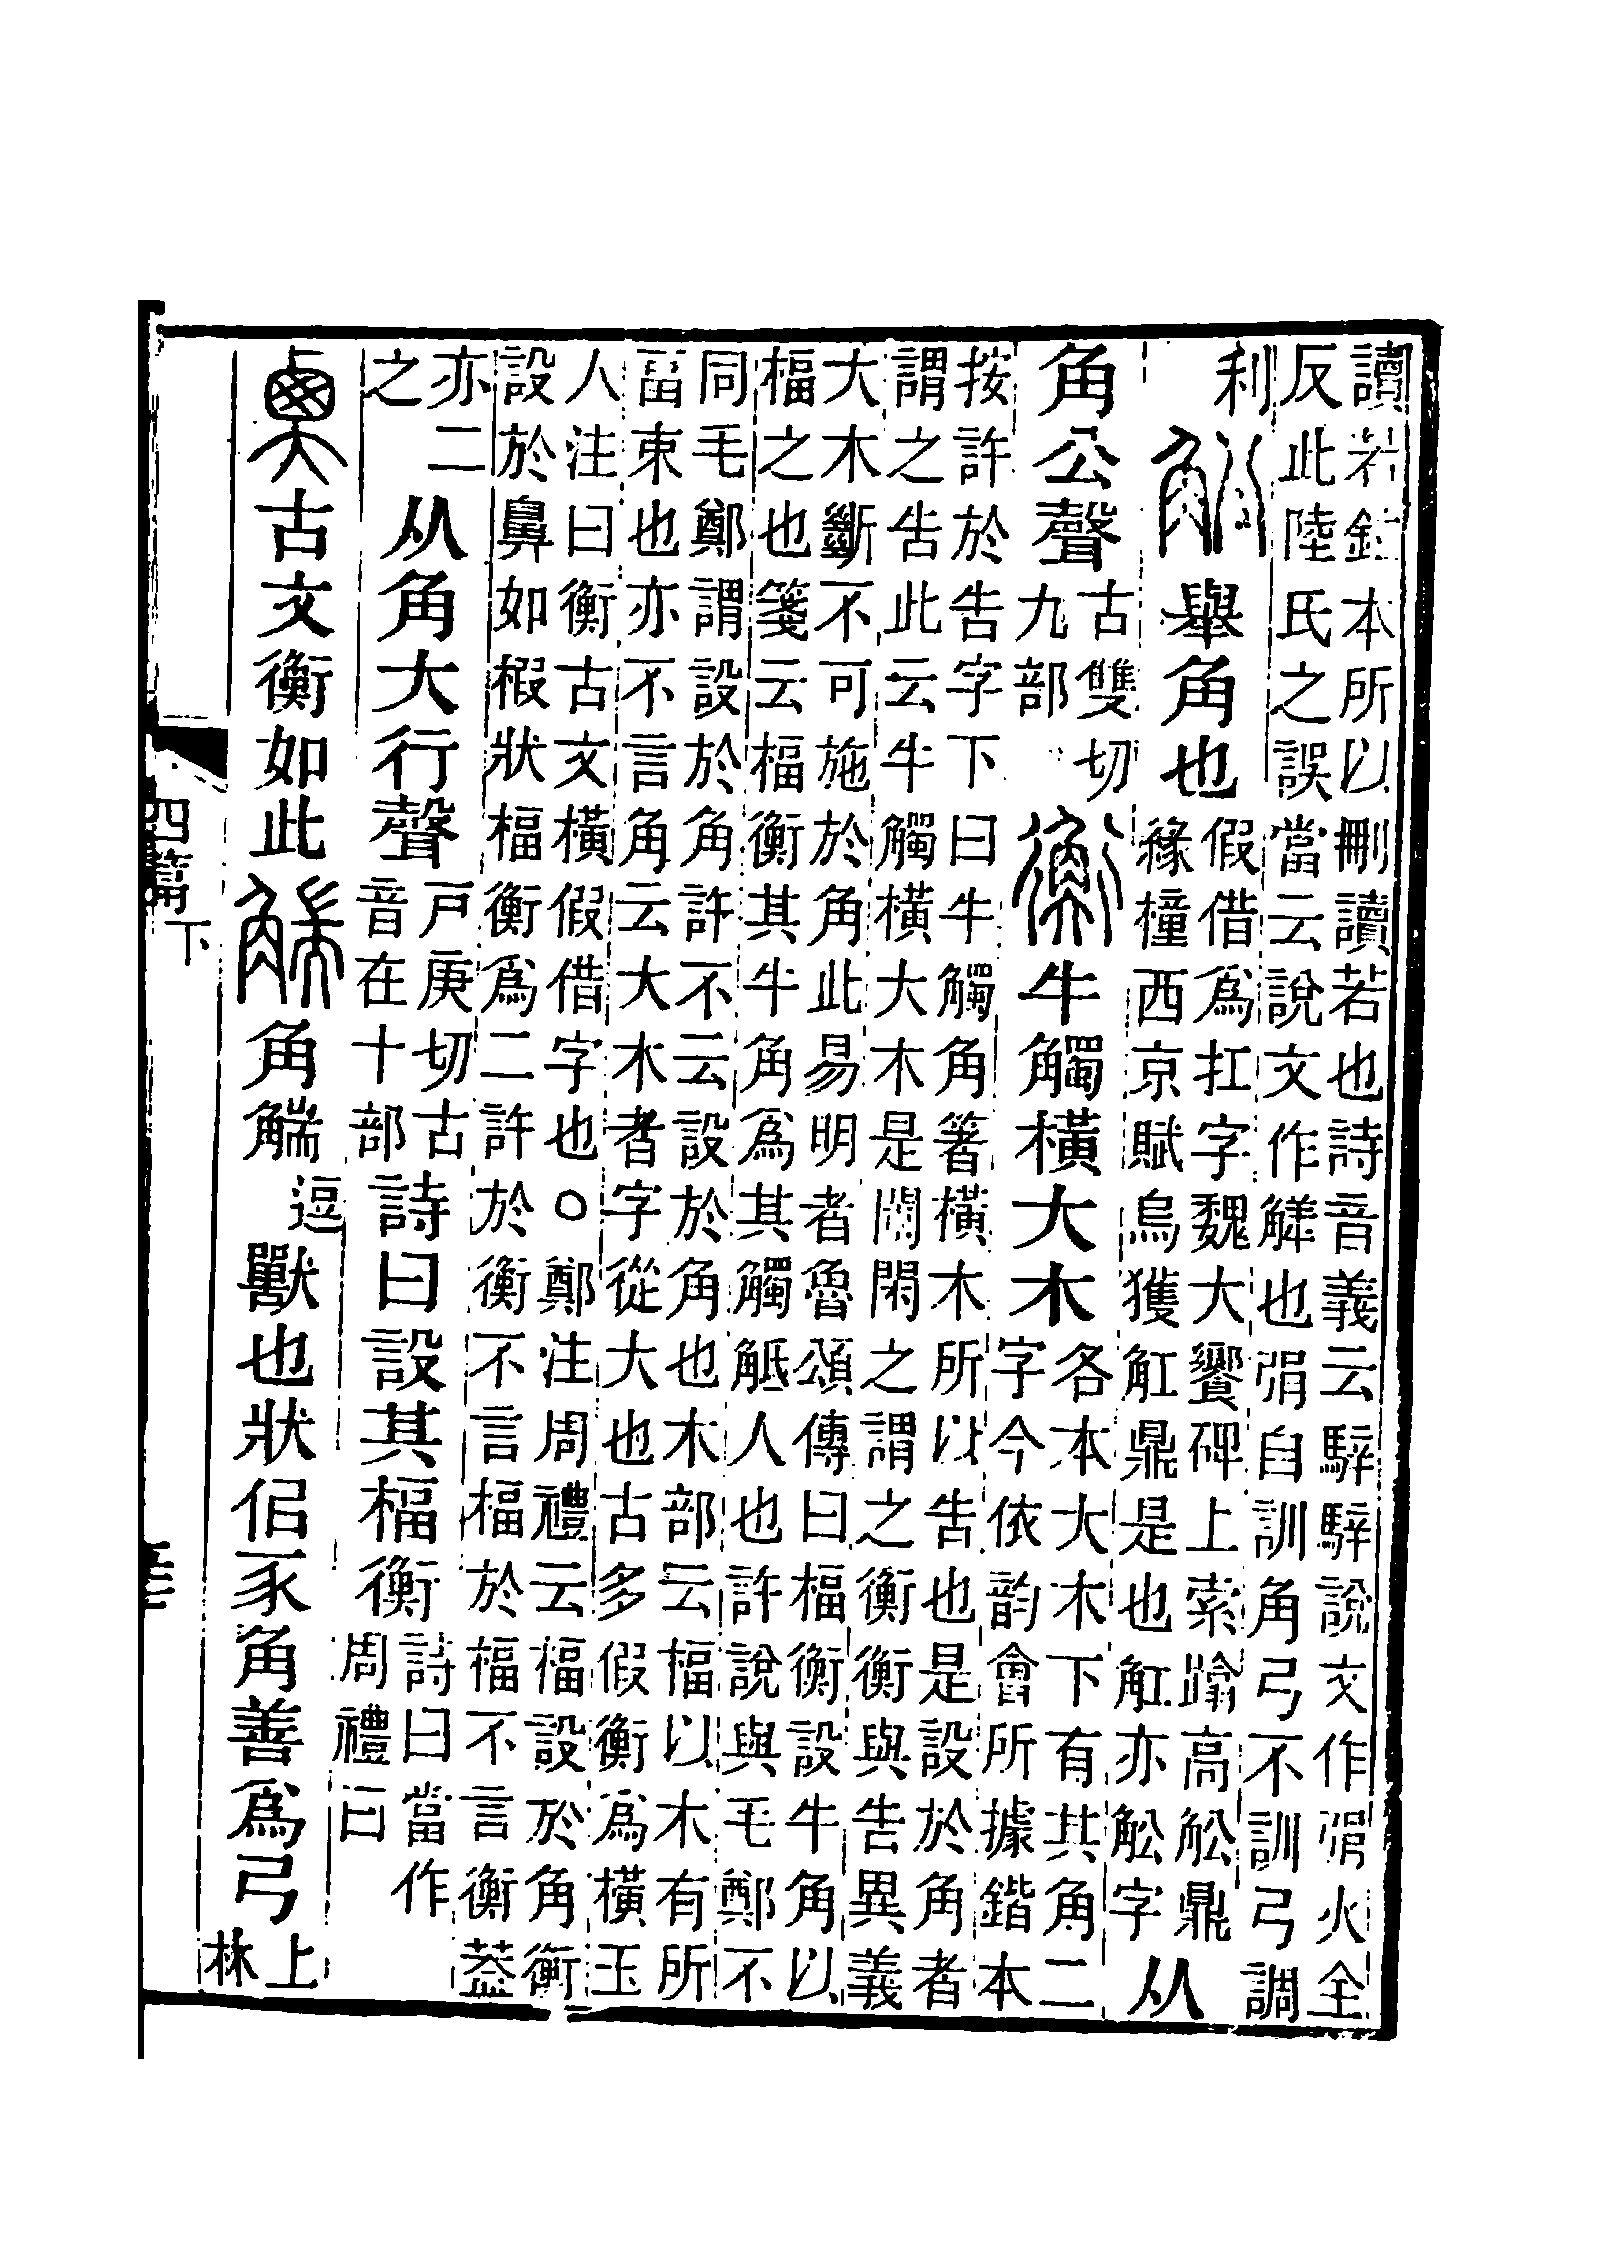 讀若鉉本所以刪讀若也詩音義云騂騂說文作弲火全
反此陸氏之誤當云說文作觲也弲自訓角弓不訓弓調
利
䚗舉角也
假借爲扛字魏大饗碑上索踰高䚗鼎
緣橦西京賦烏獲鼎是也亦䚗字
从
角公聲
古雙切
九部
衡牛觸橫大木
各本大木下有其角二
字今依韵會所據鍇本
按許於告字下曰牛觸角箸橫木所以告也是設於角者
謂之告此云牛觸橫大木是闌閑之謂之衡衡與告異義
大木斷不可施於角此易明者魯頌傳曰楅衡設牛角以
楅之也箋云楅衡其牛角爲其觸觝人也許說與毛鄭不
同毛鄭謂設於角許不云設於角也木部云楅以木有所
畐束也亦不言角云大木者字從大也古多假衡爲橫玉
人注曰衡古文橫假借字也○鄭注周禮云楅設於角衡
設於鼻如椵狀楅衡爲二許於衡不言楅於楅不言衡葢
亦二
之
从角大行聲
戶庚切古
音在十部
詩曰設其楅衡
詩曰當作
周禮曰
古文衡如此
角
逗
獸也狀佀豕角善爲弓
上
林
四篇下